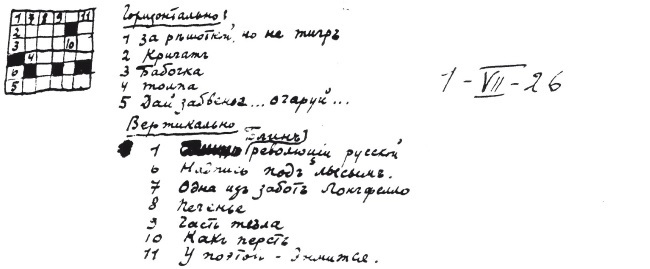 1 7 8 9 11
2
3 10
4
6
5
Горизонтально:
1 за рѣшоткой, но не тигръ
2 Кричатъ
3 Бабочка
4 толпа
5 Дай забвенье... очаруй...
1-VII-26
Вертикально
1 Блинъ революціи русской
6 Надпись подъ лысымъ.
7 Одна изъ заботъ Лонгфелло
8 Печенье
9 Часть жезла
10 Какъ персть
11 У поэтовъ - зыблится.